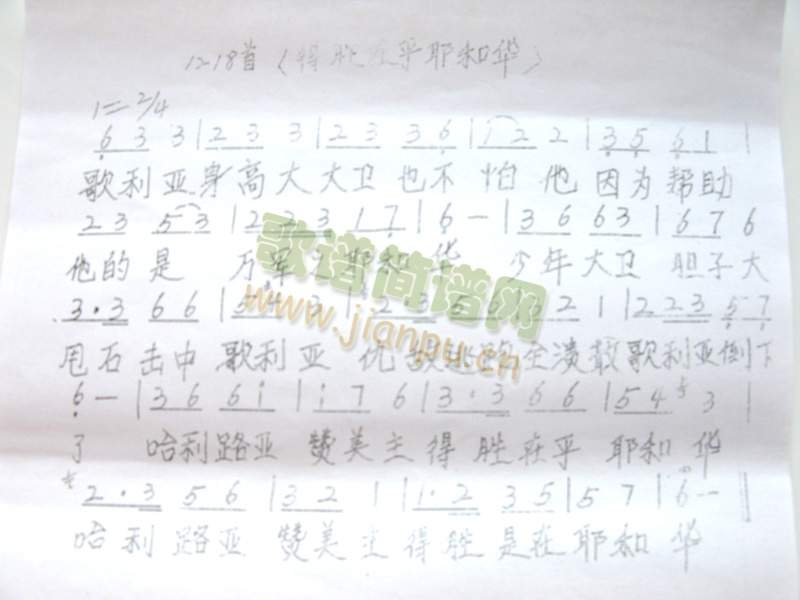 1218首(得胜在乎耶和华)
1=2/4
6 3 3 | 2 3 3 | 2 3 3 6 | 1 2 2 | 3 5 6 1 |
歌利亚身高大大卫也不怕他因为帮助
2 3 5 3 | 2 2 3 1 7 | 6 - | 3 6 6 3 | 6 7 6
他的是 万军 耶和华 少年大卫 胆子大
3 · 3 6 6 | 5 4 3 | 2 3 6 6 | 2 1 | 2 2 3 5 7
甩石击中歌利亚 仇敌逃跑全溃散歌利亚倒下
6 - | 3 6 6 i | i 7 6 | 3 · 3 6 6 | 5 4 3 |
了 哈利路亚 赞美主得胜在乎 耶和华
2 · 3 5 6 | 3 2 1 | 1 · 2 3 5 | 5 7 | 6 - ||
哈利路亚 赞美主得胜是在耶和华
歌谱简谱网
www.jianpu.cn